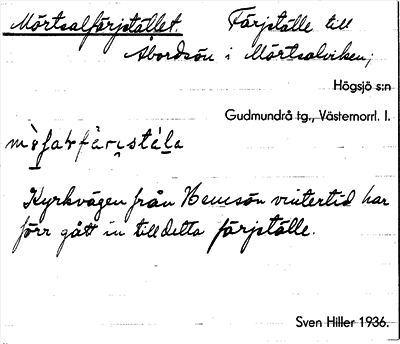 Mörtsalfärjstället. Färjställe till
Abordsön i Mörtsalviken;
Högsjö s:n
Gudmundrå tg., Västernorrl. l.
Kyrkvägen från Hemsön vintertid har
förr gått in till detta färjställe.
Sven Hiller 1936.